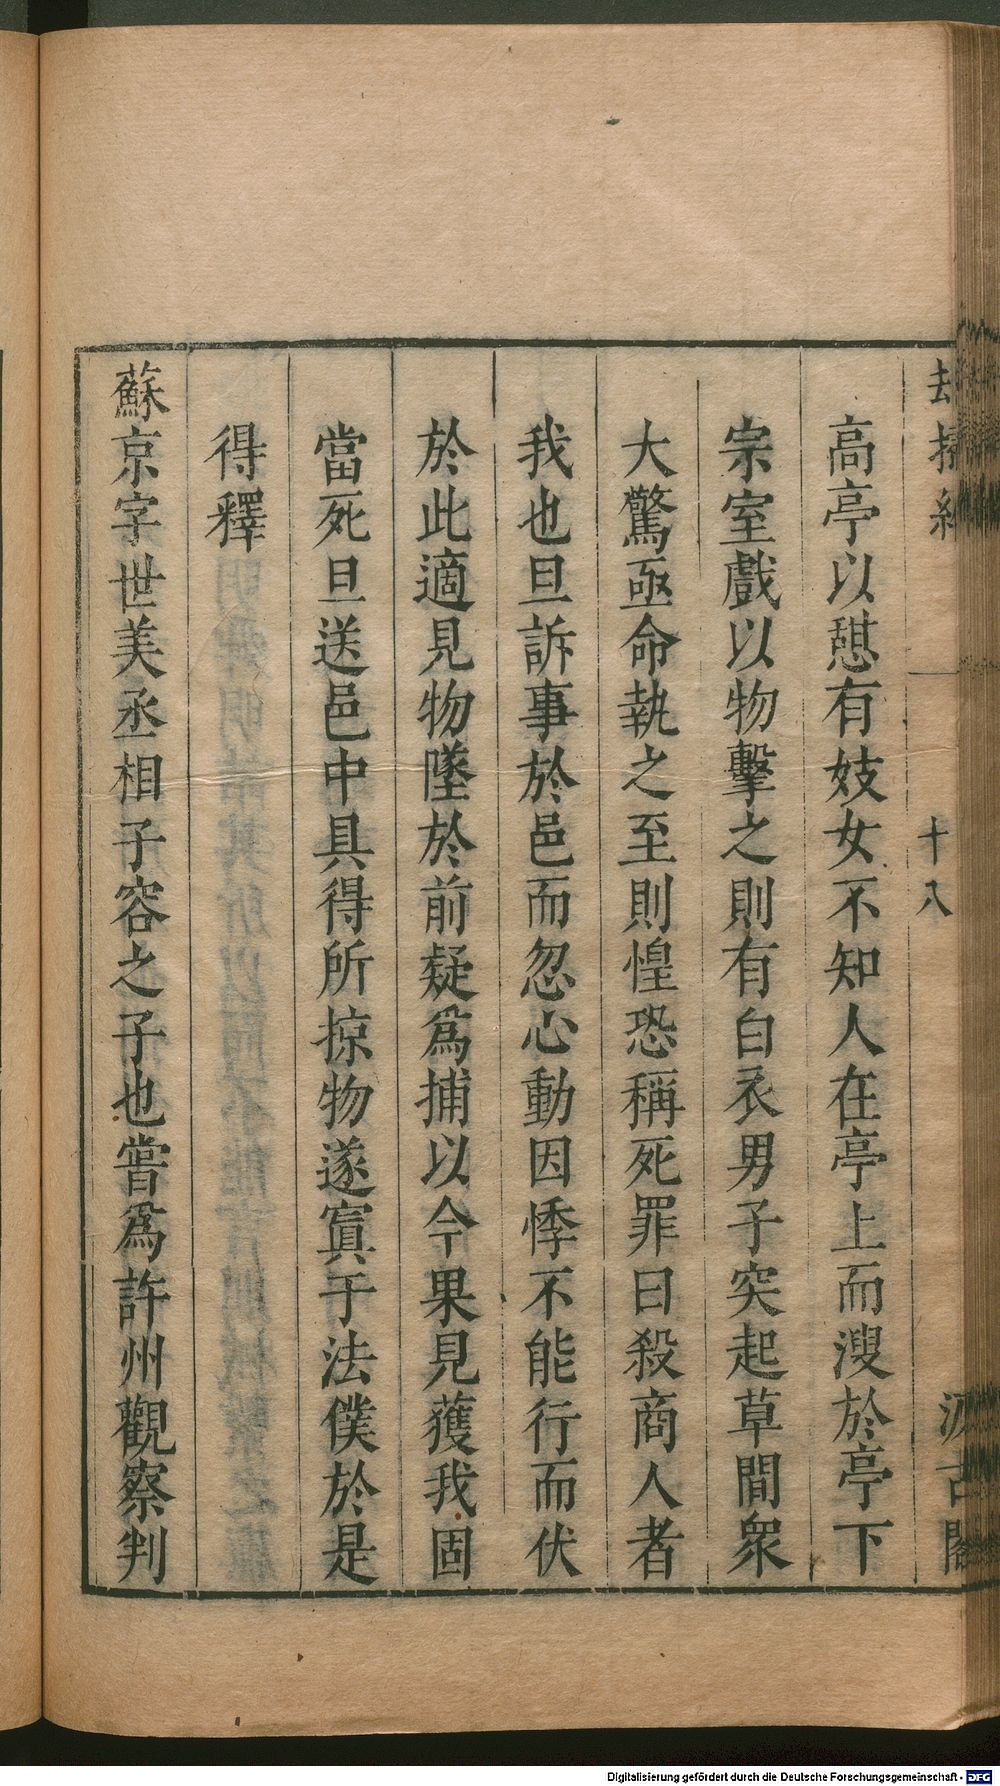 却掃編
十八
汲古閣
高亭以憇有妓女不知人在亭上而溲於亭下
宗室戲以物擊之則有白衣男子突起草間衆
大驚亟命執之至則惶恐稱死罪曰殺商人者
我也旦訴事於邑而忽心動因悸不能行而伏
於此適見物墜於前疑爲捕以今果見獲我固
當死旦送邑中具得所掠物遂寘于法僕於是
得釋
蘇京字世美丞相子容之子也嘗爲許州觀察判
Digitalisierung gefördert durch die Deutsche Forschungsgemeinschaft - DFG